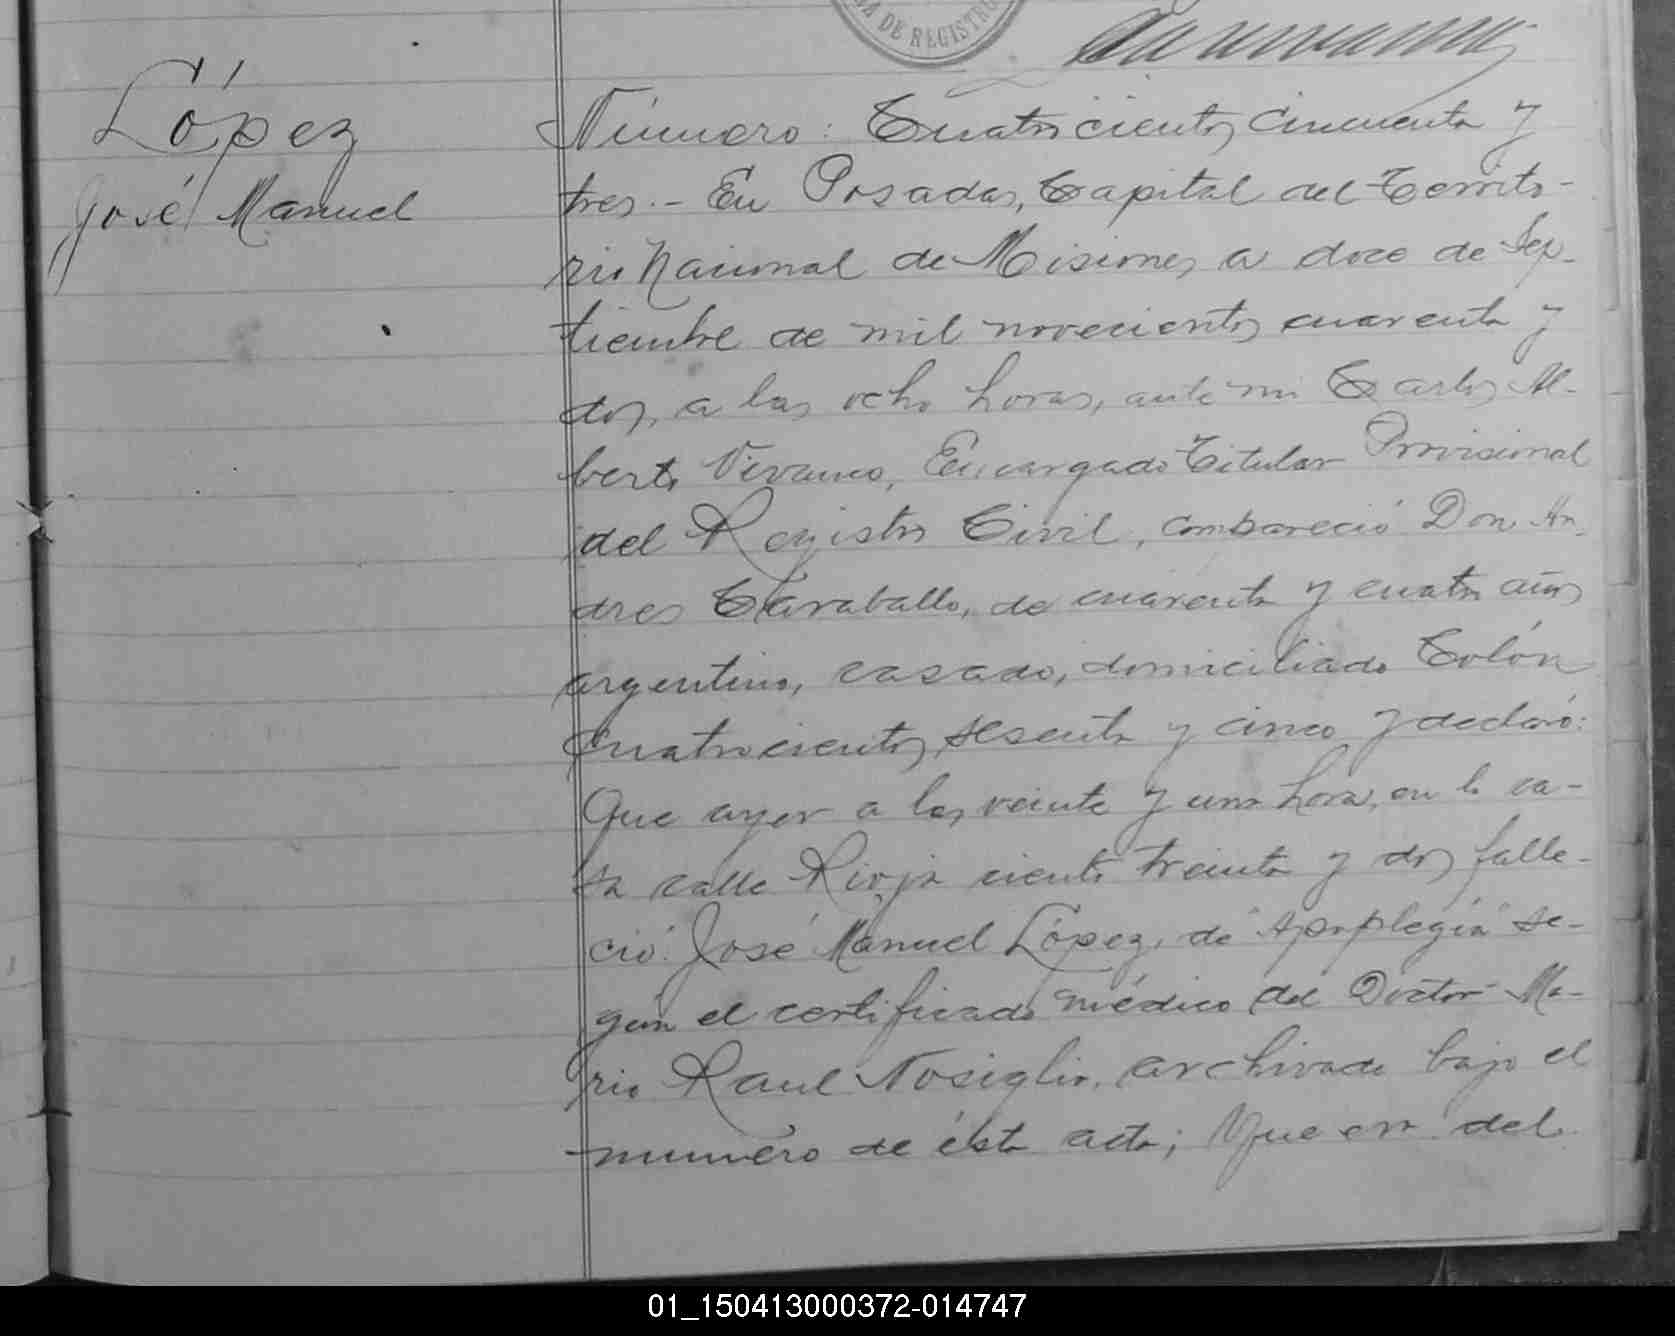 DE REGISTRO
López
José Manuel
Número: Cuatrocientos cincuenta y
tres.- En Posadas, Capital del Territo-
rio Nacional de Misiones a doce de Sep-
tiembre de mil novecientos cuarenta y
dos, a las ocho horas, ante mi Carlos Al-
berto Vivanco, Encargado Titular Provisional
del Registro Civil, compareció Don An-
dres Caraballo, de cuarenta y cuatro años
argentino, casado, domiciliado Colón
cuatrocientos sesenta y cinco y declaró:
Que ayer a las veinte y una hora, en la ca-
sa calle Rioja ciento treinta y dos falle-
ció: José Manuel López, de "Apoplegía" se-
gún el certificado médico del Doctor Ma-
rio Raul Nosiglia, archivado bajo el
numero de ésta acta; Que era del
01_150413000372-014747